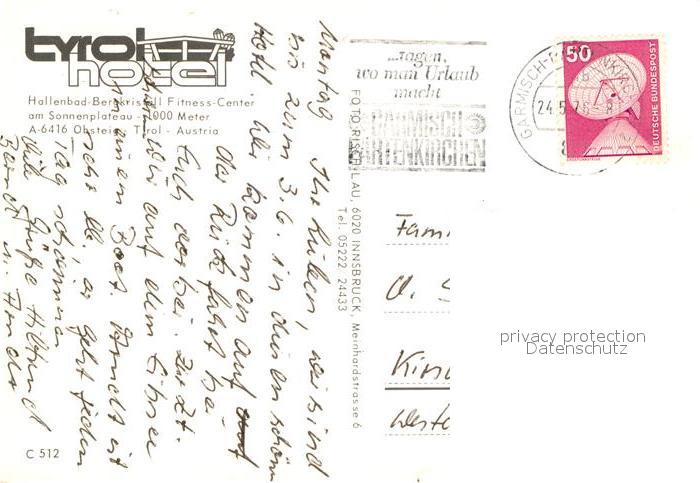 tyrol
hotel
Hallenbad-Bergkristall Fitness-Center
am Sonnenplateau - 1000 Meter
A-6416 Obsteig - Tirol - Austria
C 512
Montag Ihr Lieben, wir sind
bis zum 3.6. in diesem schönen
Hotel. Wir kommen auf
der Rückfahrt bei
Euch vorbei. Zur Zt.
sind wir auf dem
in einem Boot. Berndt ist
es geht jeden
Tag schwimmen
Viele Grüße Hiltrud
Berndt u.
FOTO RISCHLAU, 6020 INNSBRUCK, Meinhardstrasse 6
Tel. 05222 24433
...tagen,
wo man Urlaub
macht
GARMISCH
PARTENKIRCHEN
GARMISCH-PARTENKIRCHEN
24.5.
50
DEUTSCHE BUNDESPOST
Fam
A.
Kind
Weste
privacy protection
Datenschutz